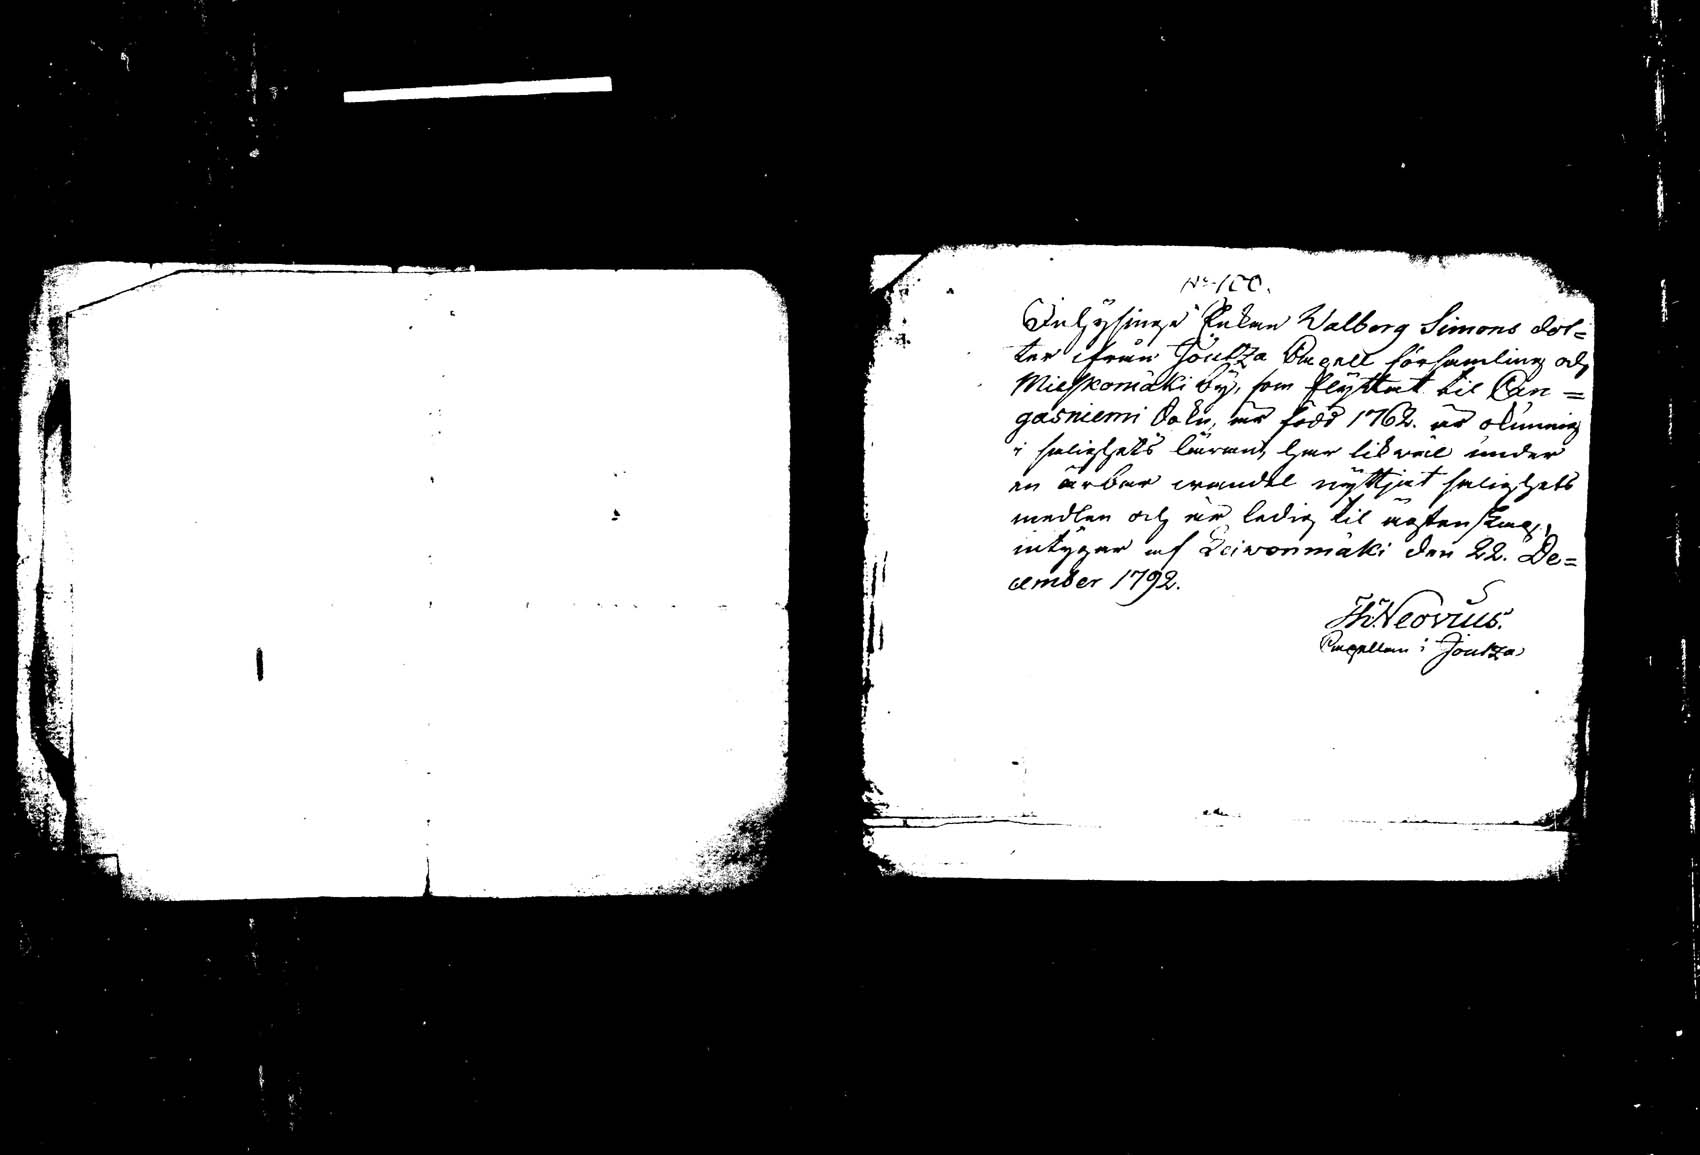 N:o 100.
Inhysings Enkan Walborg Simons dot=
ter ifrån Joutza Capell församling och
Mieskomäki by, som flyttat til Can=
gasniemi Sokn, är född 1762. är okunnig
i salighets läran, har likwäl under
en ärbar wandel nyttjat salighets
medlen och är ledig til ägtenskap,
intygar af Leiwonmäki den 22. De=
cember 1792.
Th. Neovius.
Capellan i Joutza